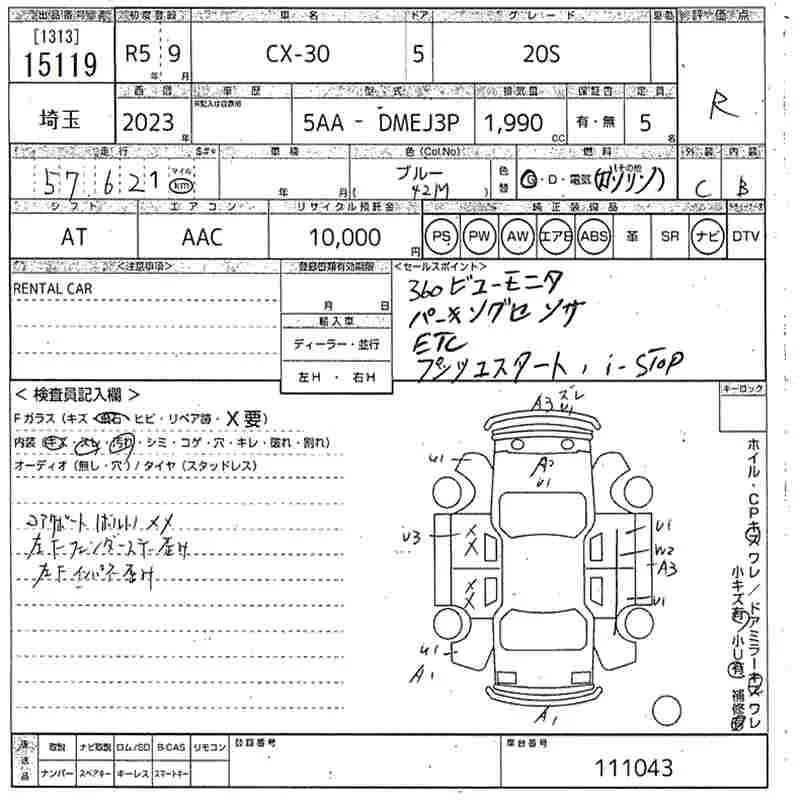 出品番号 初度登録 車名 ドア グレード 車歴 評価点
[1313]
15119 R5年 9月 CX-30 5 20S R
埼玉
年層 車歴 型式 排気量 保証書 定員
未記入は自家用
2023年 5AA - DMEJ3P 1,990cc 有・無 5名
走行 車検 色(Col.No) 燃料 外装 内装
57,621 マイル km 年 月 ブルー 色替 G・D・電気(ガソリン) その他 C B
( 42M )
シフト エアコン リサイクル預託金 純正装備品
AT AAC 10,000円 PS PW AW エアB ABS 革 SR ナビ DTV
<注意事項> 登録書類有効期限 <セールスポイント>
RENTAL CAR
月 日
輸入車
ディーラー・並行
左H・右H
360ビューモニタ
パーキングセンサ
ETC
プッシュスタート, i-STOP
キーロック
< 検査員記入欄 >
Fガラス (キズ 飛石 ヒビ・リペア跡・X要)
内装 (キズ・スレ・汚れ・シミ・コゲ・穴・キレ・破れ・割れ)
オーディオ (無し・穴) / タイヤ (スタッドレス)
コアサポート(ボルト) XX
左Fフェンダーステー歪み
左Fインパネ歪み
A3 ズレ
U1
U1
A2
U1
U3
X
X
X
X
U1
W2
A3
U1
U1
A1
A1
ホイル・CPキズワレ/ドアミラーキズワレ
小キズ有/小U有 補修跡
返送品 取説 ナビ取説 ロム/SD B-CAS リモコン 登録番号 車台番号
ナンバー スペアキー キーレス スマートキー
111043